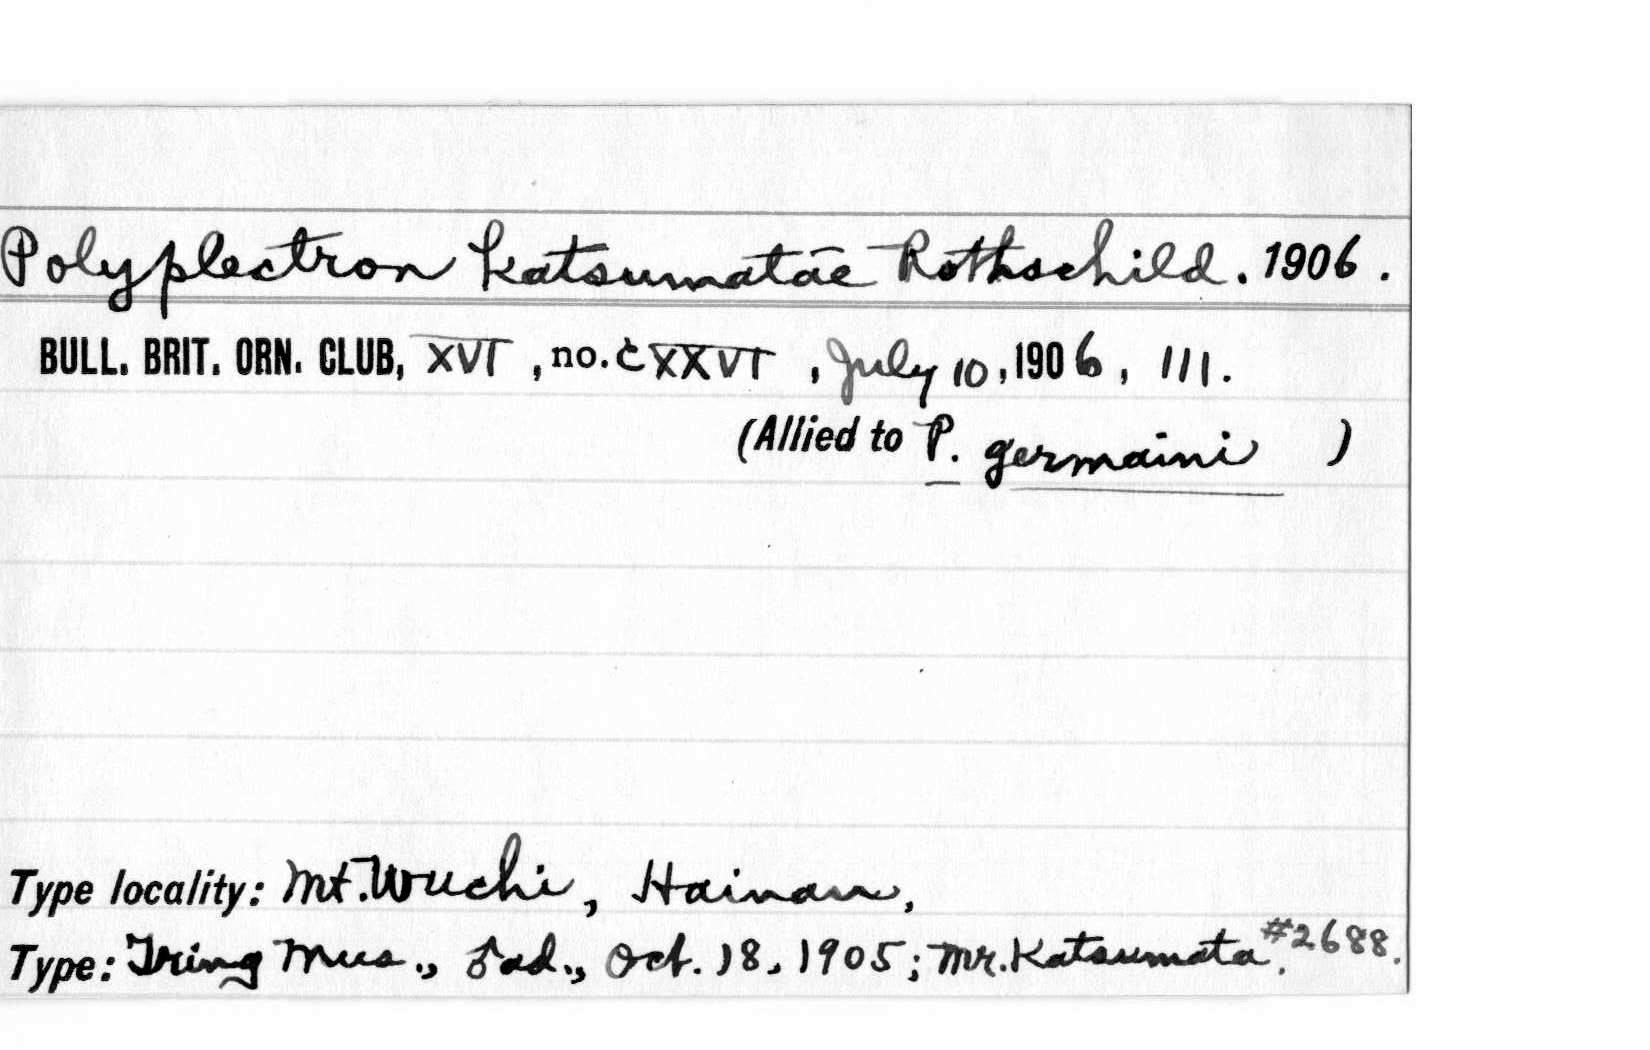 Polyplectron katsumatae Rothschild. 1906.
BULL. BRIT. ORN. CLUB, XVI, no. CXXVI, July 10, 1906, 111.
(Allied to P. germaini )
Type locality: Mt. Wuchi, Hainan,
Type: Tring Mus., ♂ ad., Oct. 18, 1905; Mr. Katsumata. #2688.